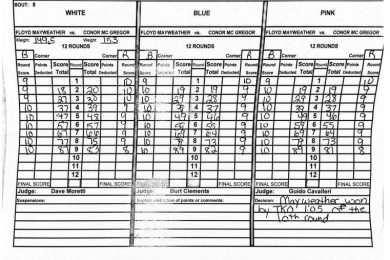 BOUT: 8
WHITE BLUE PINK
FLOYD MAYWEATHER vs. CONOR MC GREGOR FLOYD MAYWEATHER vs. CONOR MC GREGOR FLOYD MAYWEATHER vs. CONOR MC GREGOR
Weight: 149.5 Weight: 153
12 ROUNDS 12 ROUNDS 12 ROUNDS
B Corner Corner R B Corner Corner R B Corner Corner R
Round Points Score Round Score Points Round Round Points Score Round Score Points Round Round Points Score Round Score Points Round
Score Deducted Total Total Deducted Score Score Deducted Total Total Deducted Score Score Deducted Total Total Deducted Score
9 1 10 1 1
9 18 2 20 10 10 19 2 19 9 10 19 2 19 9
3 10 29 3 28 9 10 29 3 28 9
10 37 4 39 10 39 4 37 9 10 39 4 37 9
10 47 5 48 9 10 49 5 46 9 10 49 5 46 9
10 57 6 57 9 10 6 9 10 59 6 55 9
10 67 7 66 9 10 69 7 64 9 10 69 7 64 9
10 77 8 75 9 10 79 8 73 9 10 79 8 73 9
10 87 9 83 8 10 89 9 82 9 10 89 9 81 8
10 10 10
11 11 11
12 12 12
FINAL SCORE FINAL SCORE FINAL SCORE FINAL SCORE FINAL SCORE
Judge: Dave Moretti Judge: Burt Clements Judge: Guido Cavalleri
Suspensions: of points or comments: Decision: Mayweather won
by TKO 1:05 of the
10th round